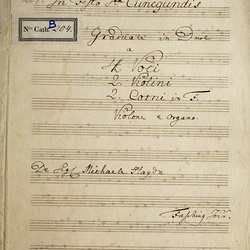 In Festo Stae Cunegundis
Nro Cath. B 204.
Graduale in D
a
4 Voci
2. Violini
2. Corni in F.
Violone e Organo.
De Sigl Michaele Haydn